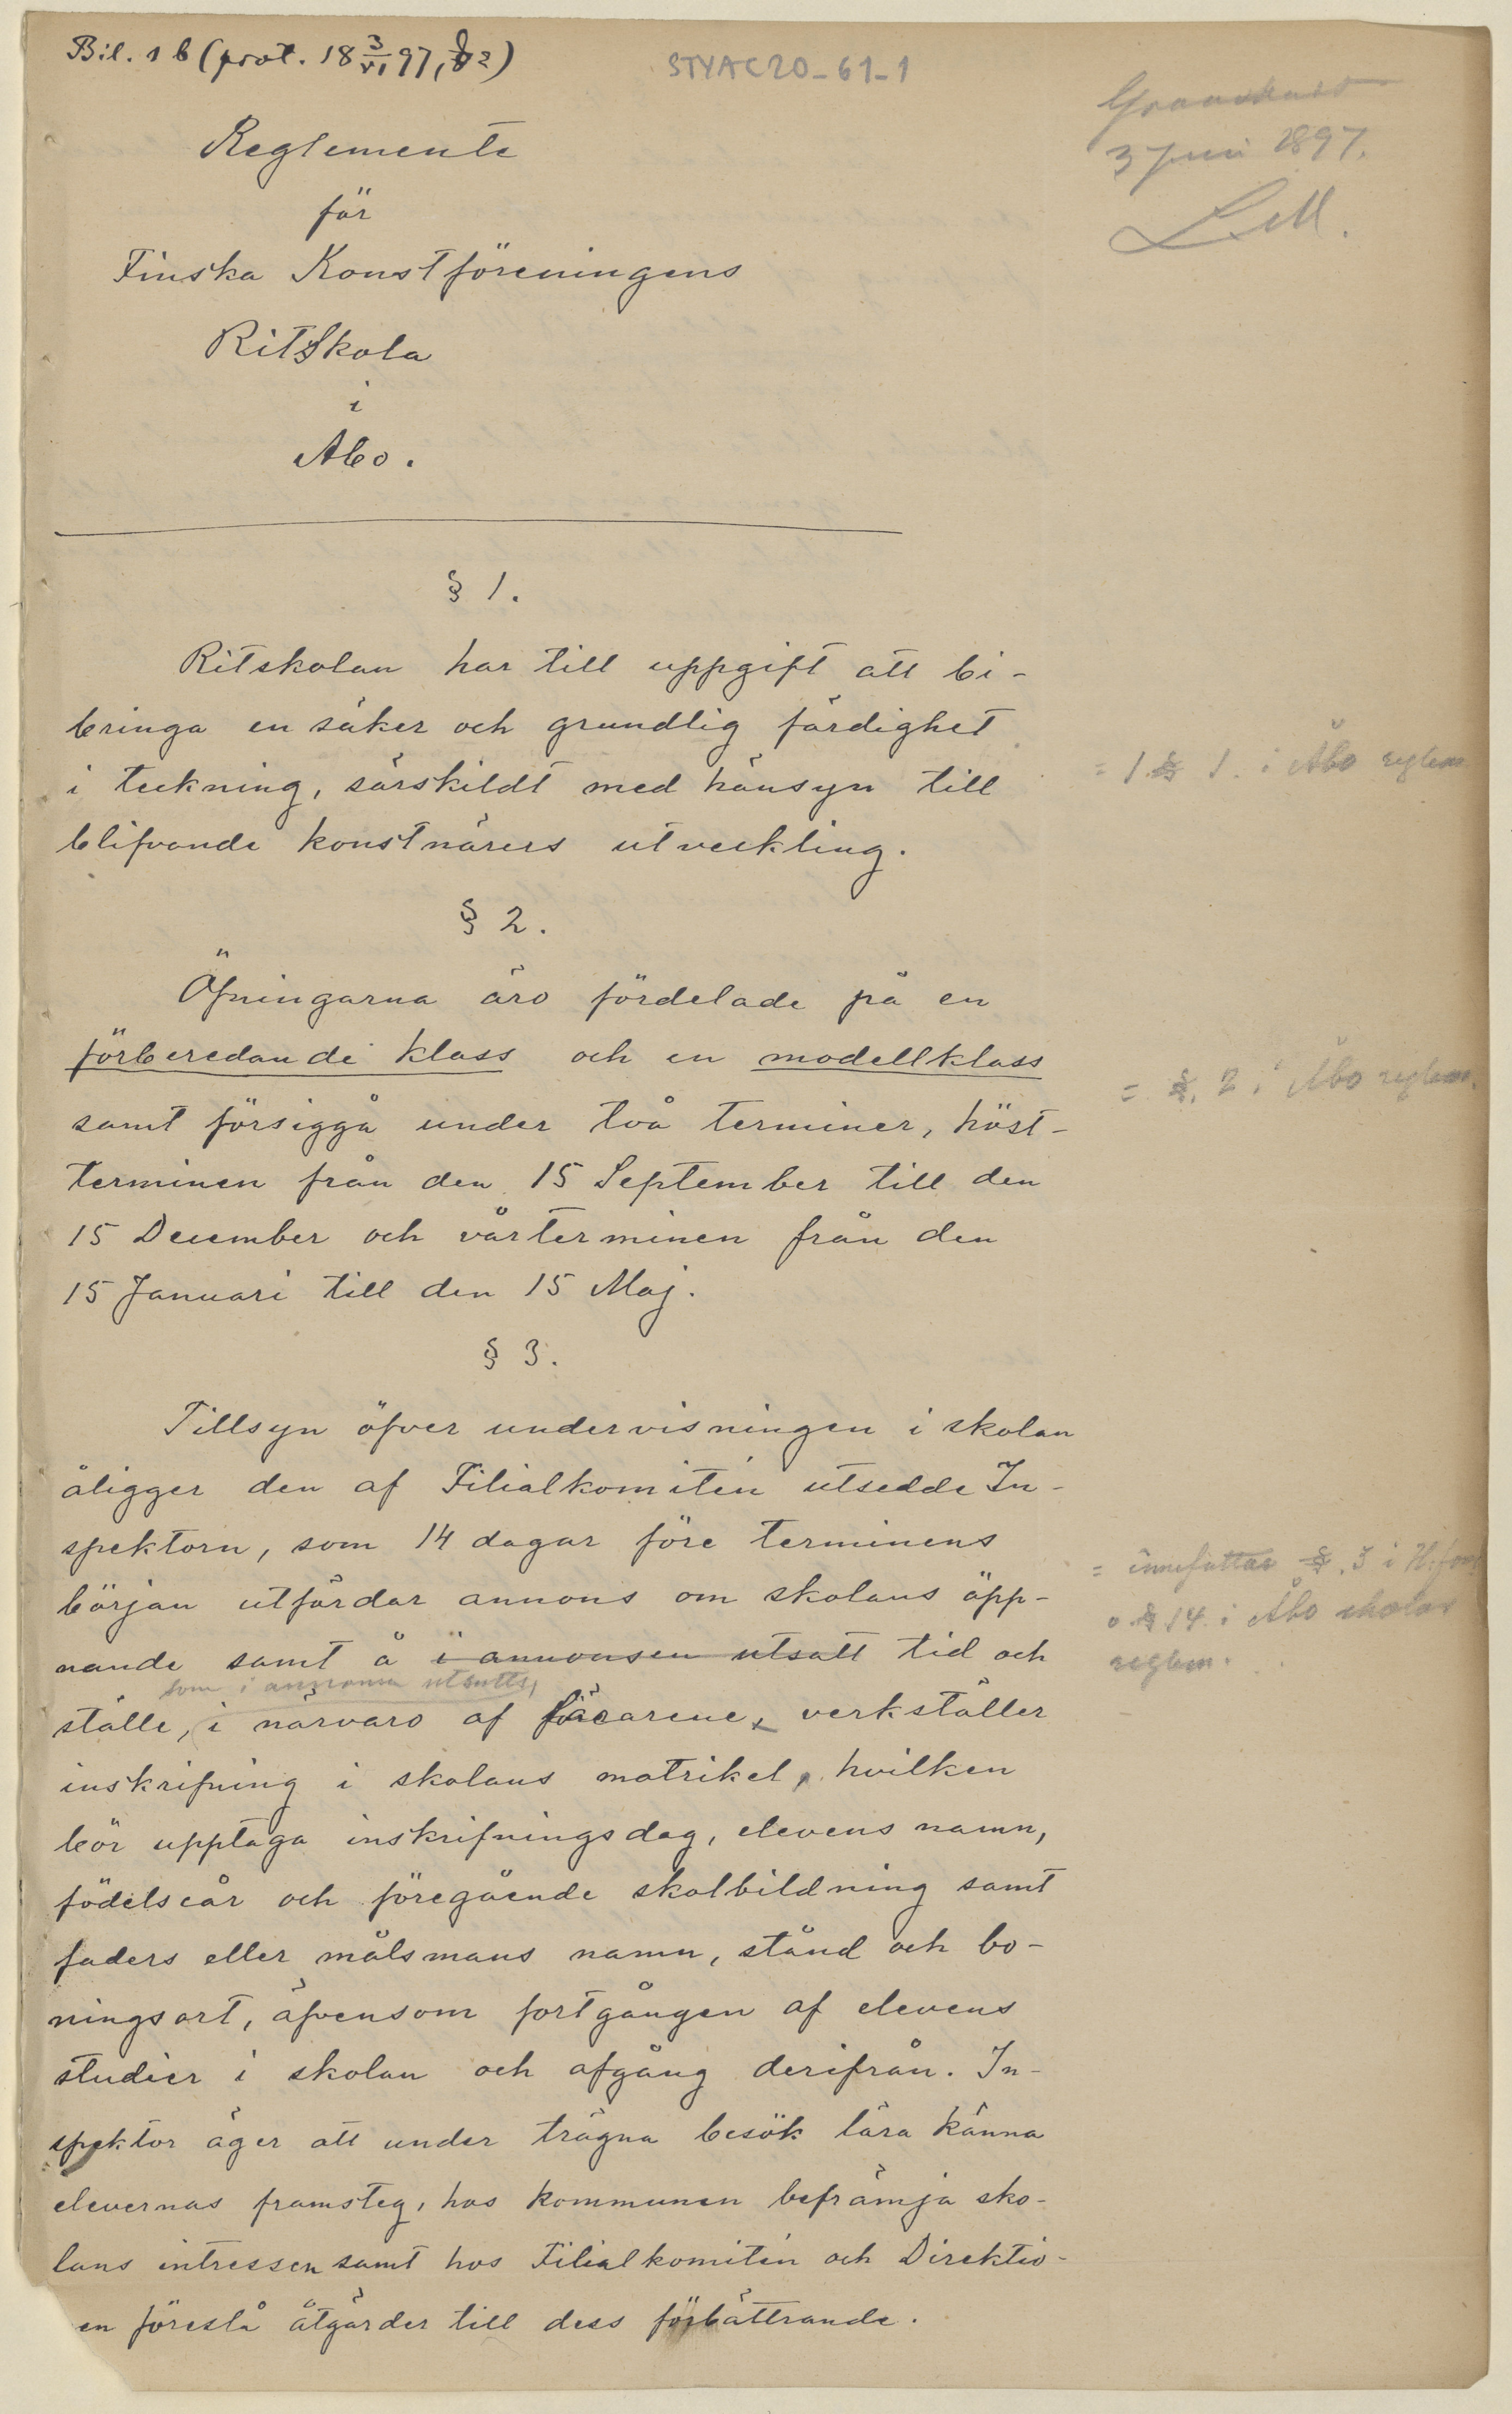 Bil. 1 b (prot. 18 3/VI 97, § 2)
STYAC20-61-1
Granskadt
3 Juni 1897.
Reglemente
för
Finska Konstföreningens
Ritskola
i
Åbo.
§ 1.
Ritskolan har till uppgift att bi-
bringa en säker och grundlig färdighet
i teckning, särskildt med hänsyn till
blifvande konstnärers utveckling.
= § 1. i Åbo reglem.
§ 2.
Öfningarna äro fördelade på en
förberedande klass och en modellklass
samt försiggå under två terminer, höst-
terminen från den 15 September till den
15 December och vårterminen från den
15 Januari till den 15 Maj.
= § 2 i Åbo reglem.
§ 3.
Tillsyn öfver undervisningen i skolan
åligger den af Filialkomitén utsedde In-
spektorn, som 14 dagar före terminens
början utfärdar annons om skolans öpp-
nande samt å i annonsen utsatt tid och
som i annonsen utsatts,
ställe, i närvaro af lärarene, verkställer
inskrifning i skolans matrikel, hvilken
bör upptaga inskrifningsdag, elevens namn,
födelseår och föregående skolbildning samt
faders eller målsmans namn, stånd och bo-
ningsort, äfvensom fortgången af elevens
studier i skolan och afgång derifrån. In-
spektor äger att under trägna besök lära känna
elevernas framsteg, hos kommunen befrämja sko-
lans intressen samt hos Filialkomitén och Direktio-
en föreslå åtgärder till dess förbättrande.
= innefattas § 3 i H:fors
o § 14 i Åbo skolas
reglem.